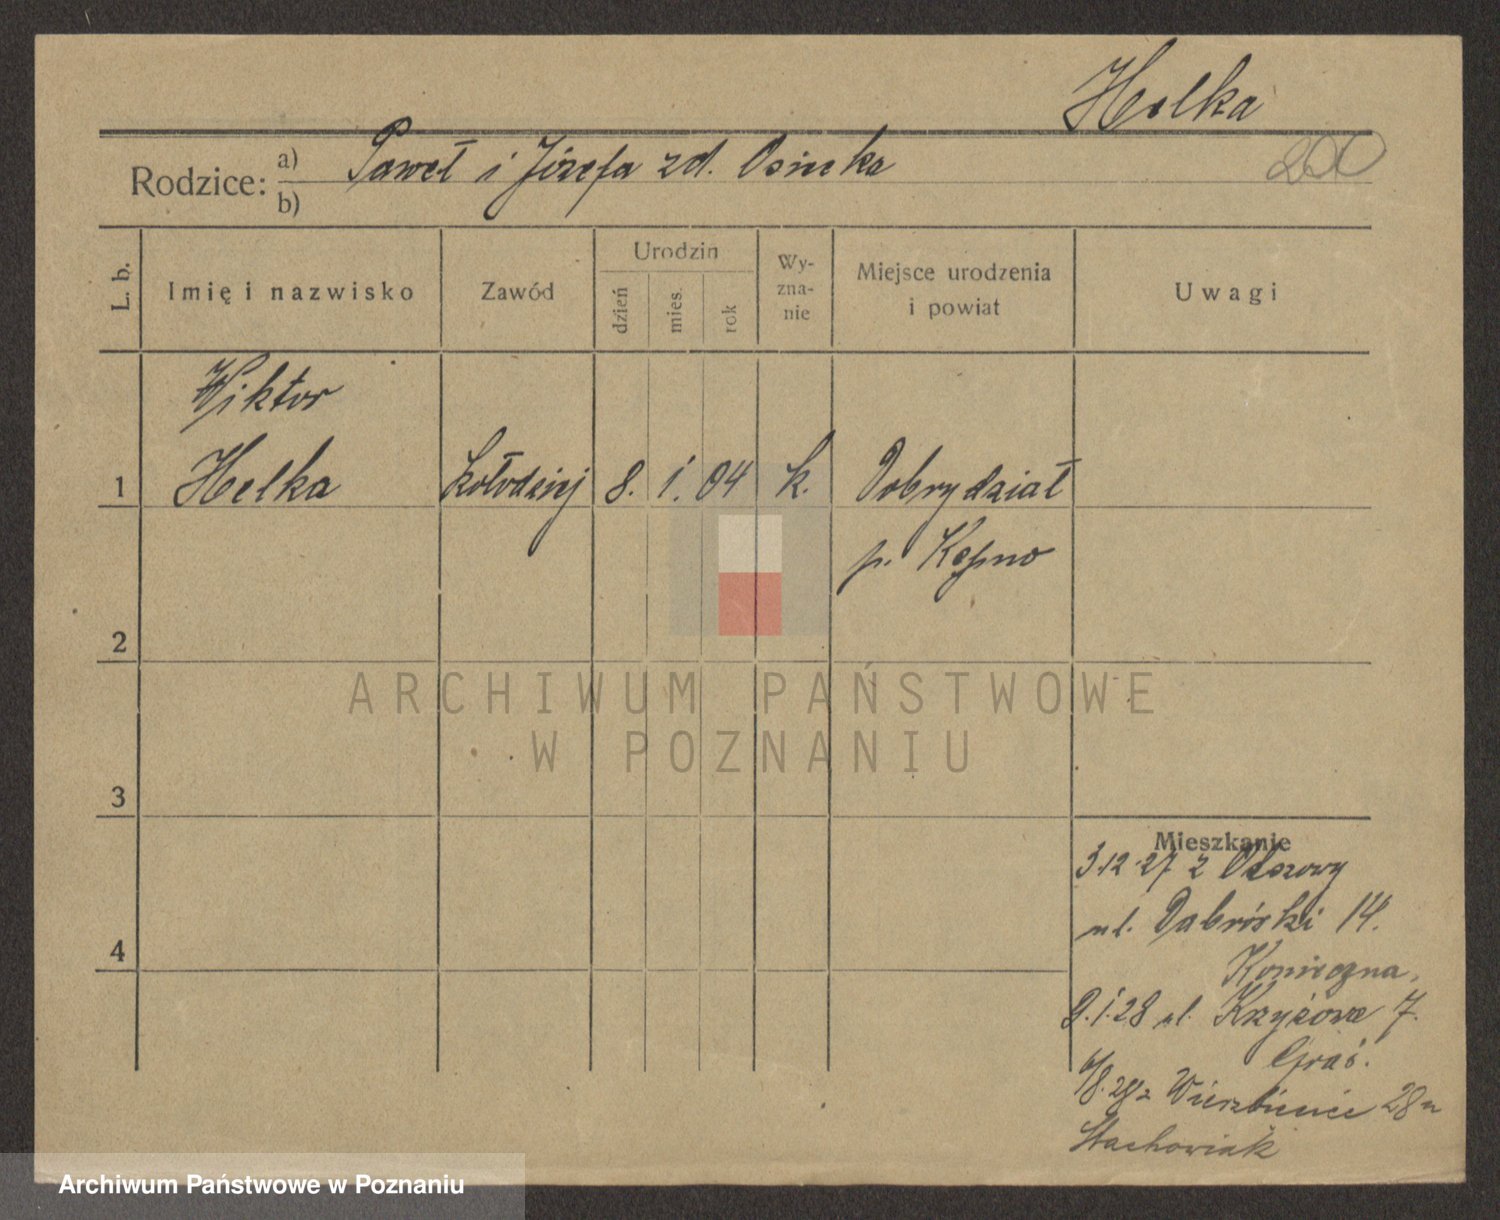 Helka
200
Rodzice: a) Paweł i Józefa zd. Osiecka
b)
L. b.
Imię i nazwisko
Zawód
Urodzin
dzień
mies.
rok
Wy-
zna-
nie
Miejsce urodzenia
i powiat
Uwagi
Wiktor
1 Helka kołodziej 8. 1. 04 k. Dobrydział
p. Kępno
2
3
4
Mieszkanie
3.12.27 z Olszowy
ul. Dąbrówki 14.
Konieczna,
9.1.28 ul. Krzyżowa 7.
Graś.
6/8.28 z Wierzbiencice 28
Stachowiak
ARCHIWUM PAŃSTWOWE
W POZNANIU
Archiwum Państwowe w Poznaniu